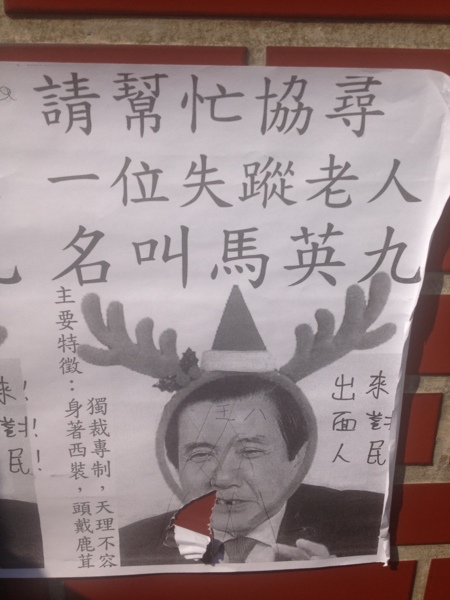 請幫忙協尋
一位失蹤老人
名叫馬英九
主要特徵：
身著西裝，頭戴鹿茸
獨裁專制，天理不容
王八
出面
來對人民
來！
對！
民！